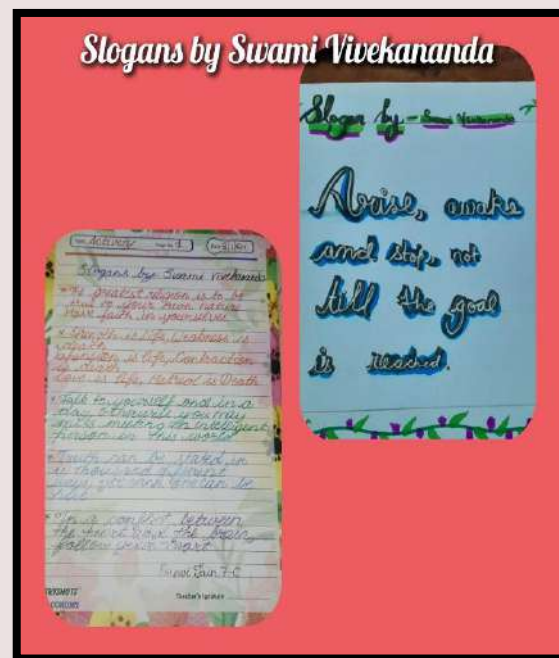 Slogans by Swami Vivekananda
Slogan by - Swami Vivekananda
Arise, awake
and stop, not
till the goal
is reached.
Activity
1
Slogans by Swami Vivekananda
The greatest religion is to be
true to your own nature
Have faith in yourselves
Strength is life, Weakness is
Death
Expansion is life, Contraction
is death
Love is life, Hatred is Death
Talk to yourself once in a
day, otherwise you may
miss meeting an intelligent
person in this world
Truth can be stated in
a thousand different
ways yet each one can be
true
In a conflict between
the heart and the brain,
follow your heart
Jain 7-C
Teacher's Signature